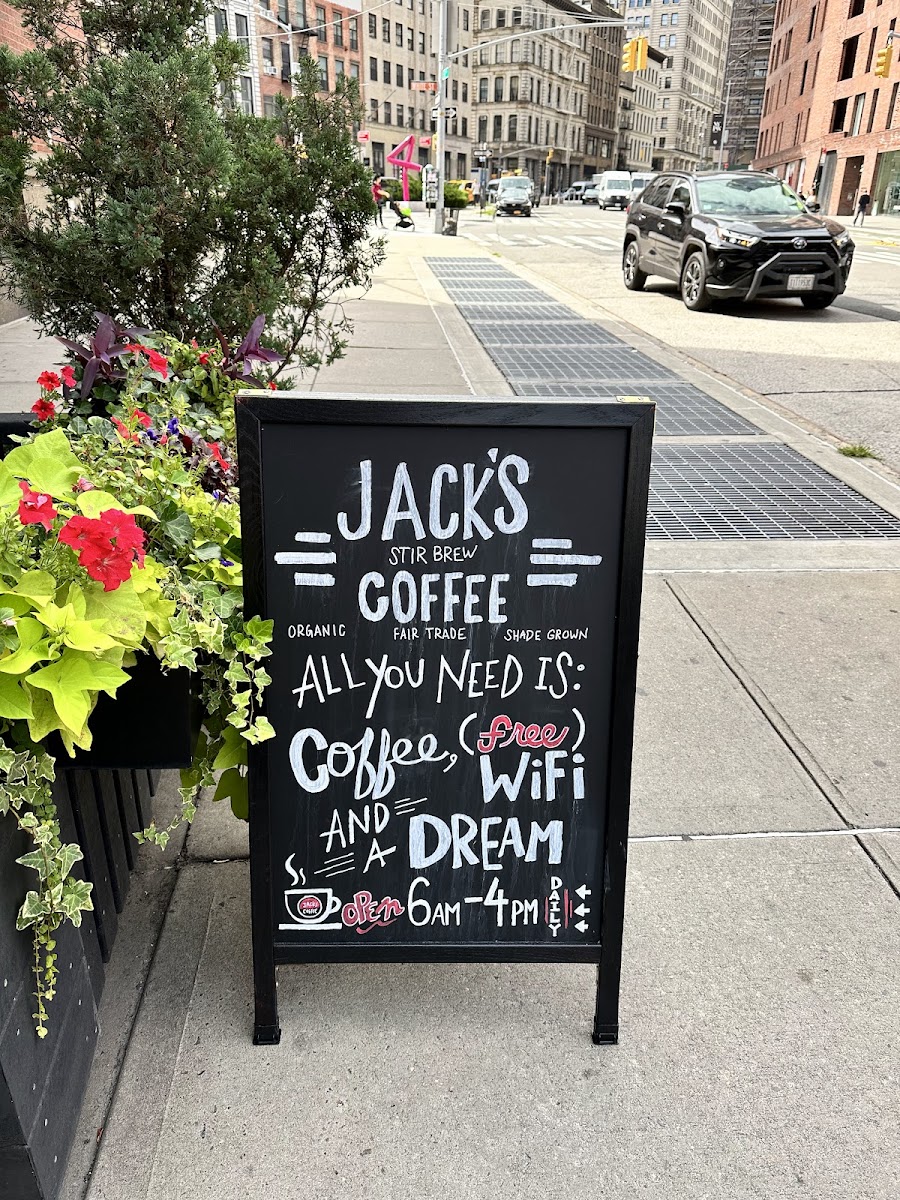 JACK'S
STIR BREW
COFFEE
ORGANIC FAIR TRADE SHADE GROWN
ALL YOU NEED IS:
Coffee, (free)
WiFi
AND
A DREAM
JACK'S
COFFEE
OPEN 6AM-4PM DAILY
4